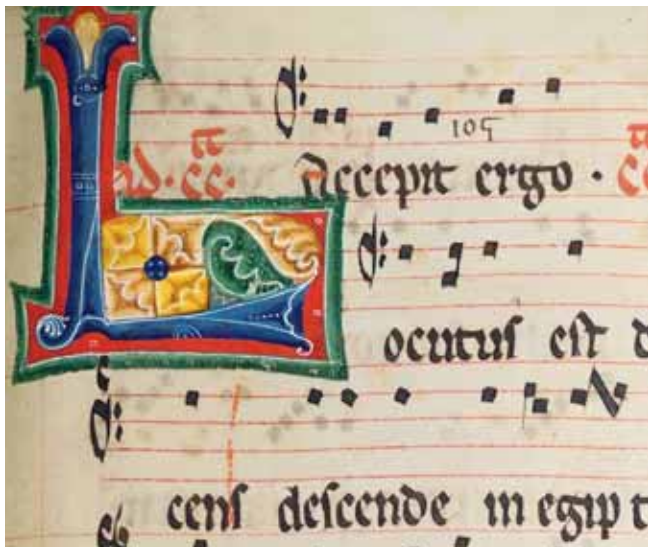 105
ad · cc · Accepit ergo · cc
Locutus est d
cens descende in egipt